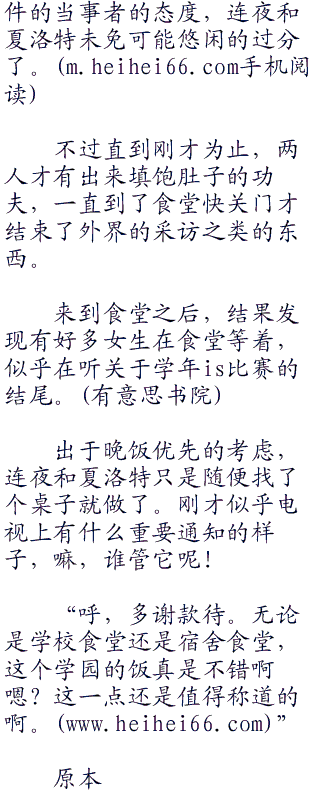 件的当事者的态度，连夜和
夏洛特未免可能悠闲的过分
了。(m.heihei66.com手机阅
读)
不过直到刚才为止，两
人才有出来填饱肚子的功
夫，一直到了食堂快关门才
结束了外界的采访之类的东
西。
来到食堂之后，结果发
现有好多女生在食堂等着，
似乎在听关于学年is比赛的
结尾。(有意思书院)
出于晚饭优先的考虑，
连夜和夏洛特只是随便找了
个桌子就做了。刚才似乎电
视上有什么重要通知的样
子，嘛，谁管它呢！
“呼，多谢款待。无论
是学校食堂还是宿舍食堂，
这个学园的饭真是不错啊
嗯？这一点还是值得称道的
啊。(www.heihei66.com)”
原本